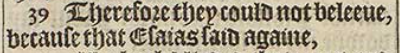 39 Therefore they could not beleeue,
becauſe that Eſaias ſaid againe,